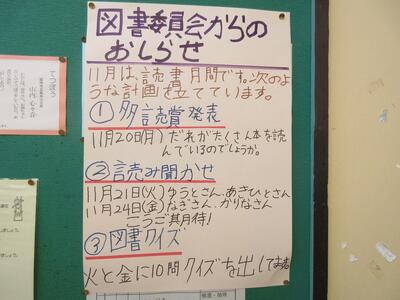 図書委員会からの
おしらせ
11月は、読書月間です。次のよ
うな計画を立てています。
①多読賞発表
11月20日(月) だれがたくさん本を読
んでいるのでしょうか。
②読み聞かせ
11月21日(火) ゆうとさん、あきひとさん
11月24日(金) なぎさん、かりなさん
こうご其月待!
③図書クイズ
火と金に10問クイズを出してます
てつぼう